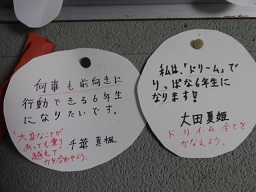 何事も前向きに
行動できる6年生
になりたいです。
千葉真楓
大変なことが
あっても乗り
越えて
力を合わせよう。
私は、「ドリーム」で
りっぱな6年生に
なります!
太田夏姫
ドリーム全てを
かなえよう。